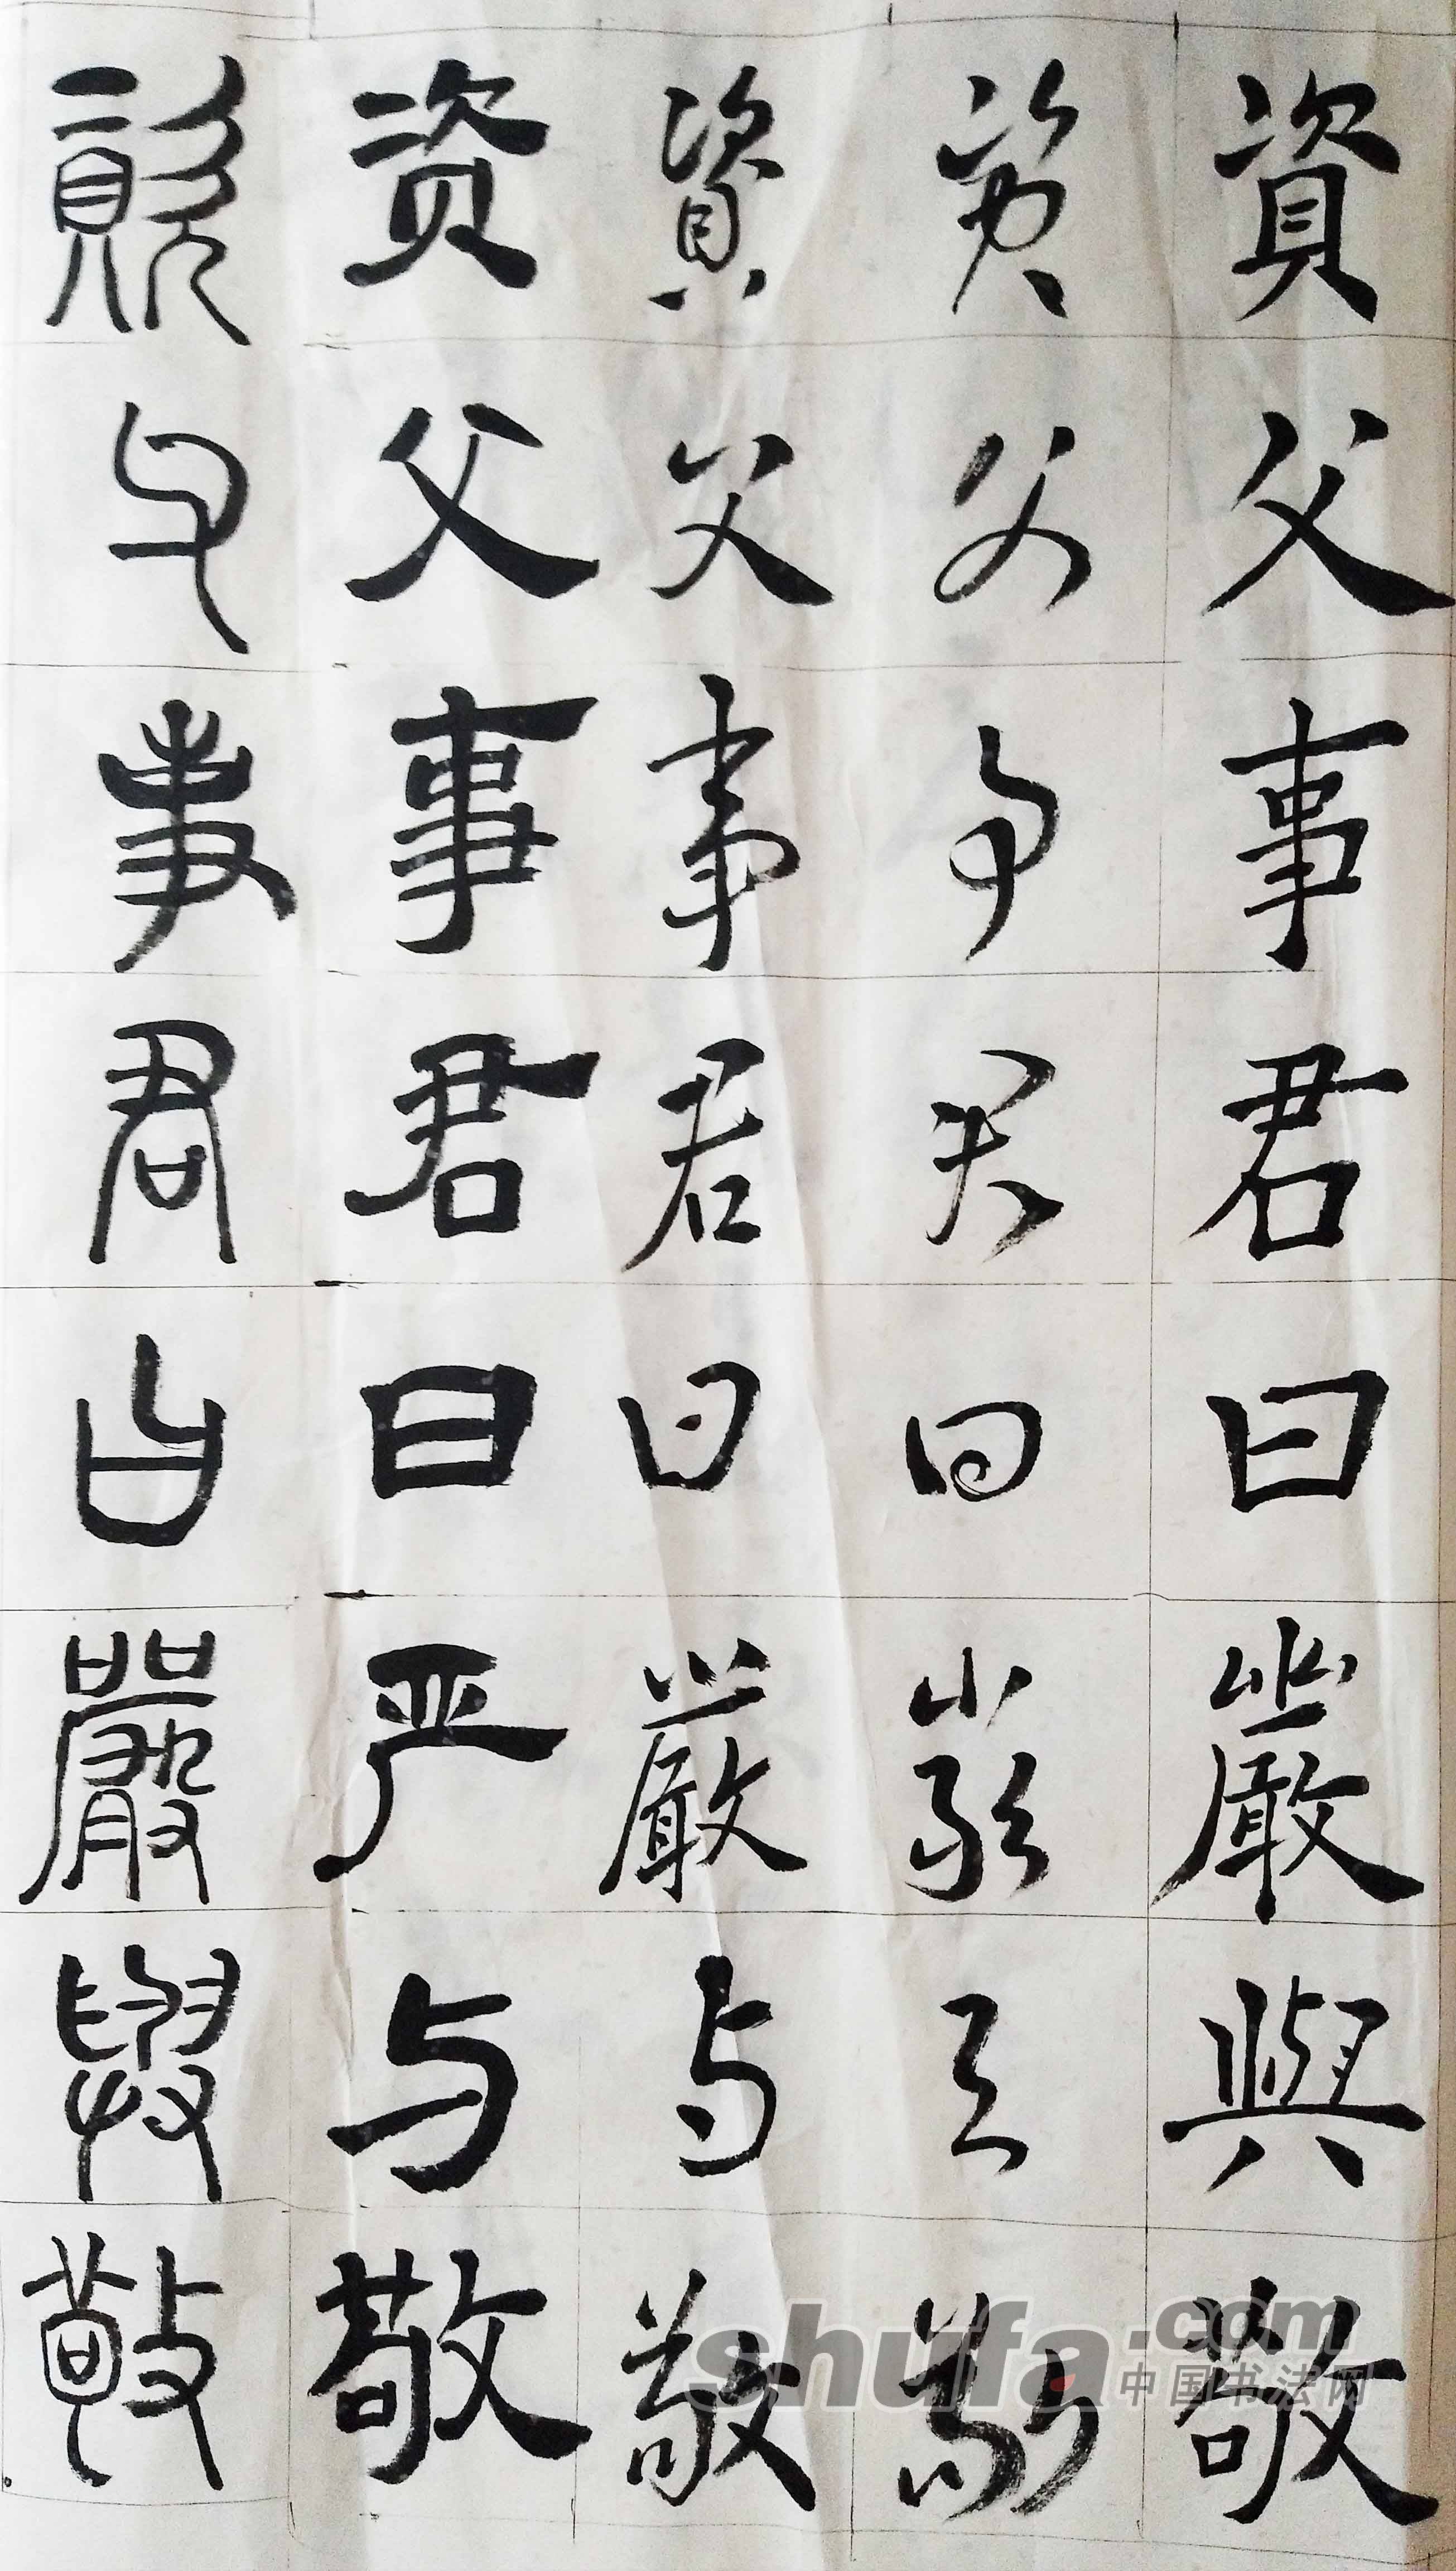 資父事君曰嚴與敬
資父事君曰嚴与敬
資父事君曰嚴与敬
资父事君曰严与敬
資父事君曰嚴與敬
shufa.com
中国书法网